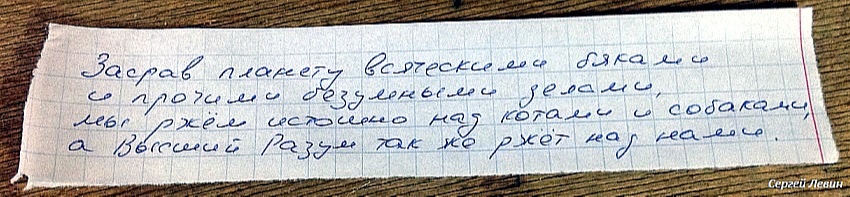 Засрав планету всяческими бяками
и прочими безумными делами,
мы ржём истошно над котами и собаками,
а Высший Разум так же ржёт над нами.
Сергей Левин